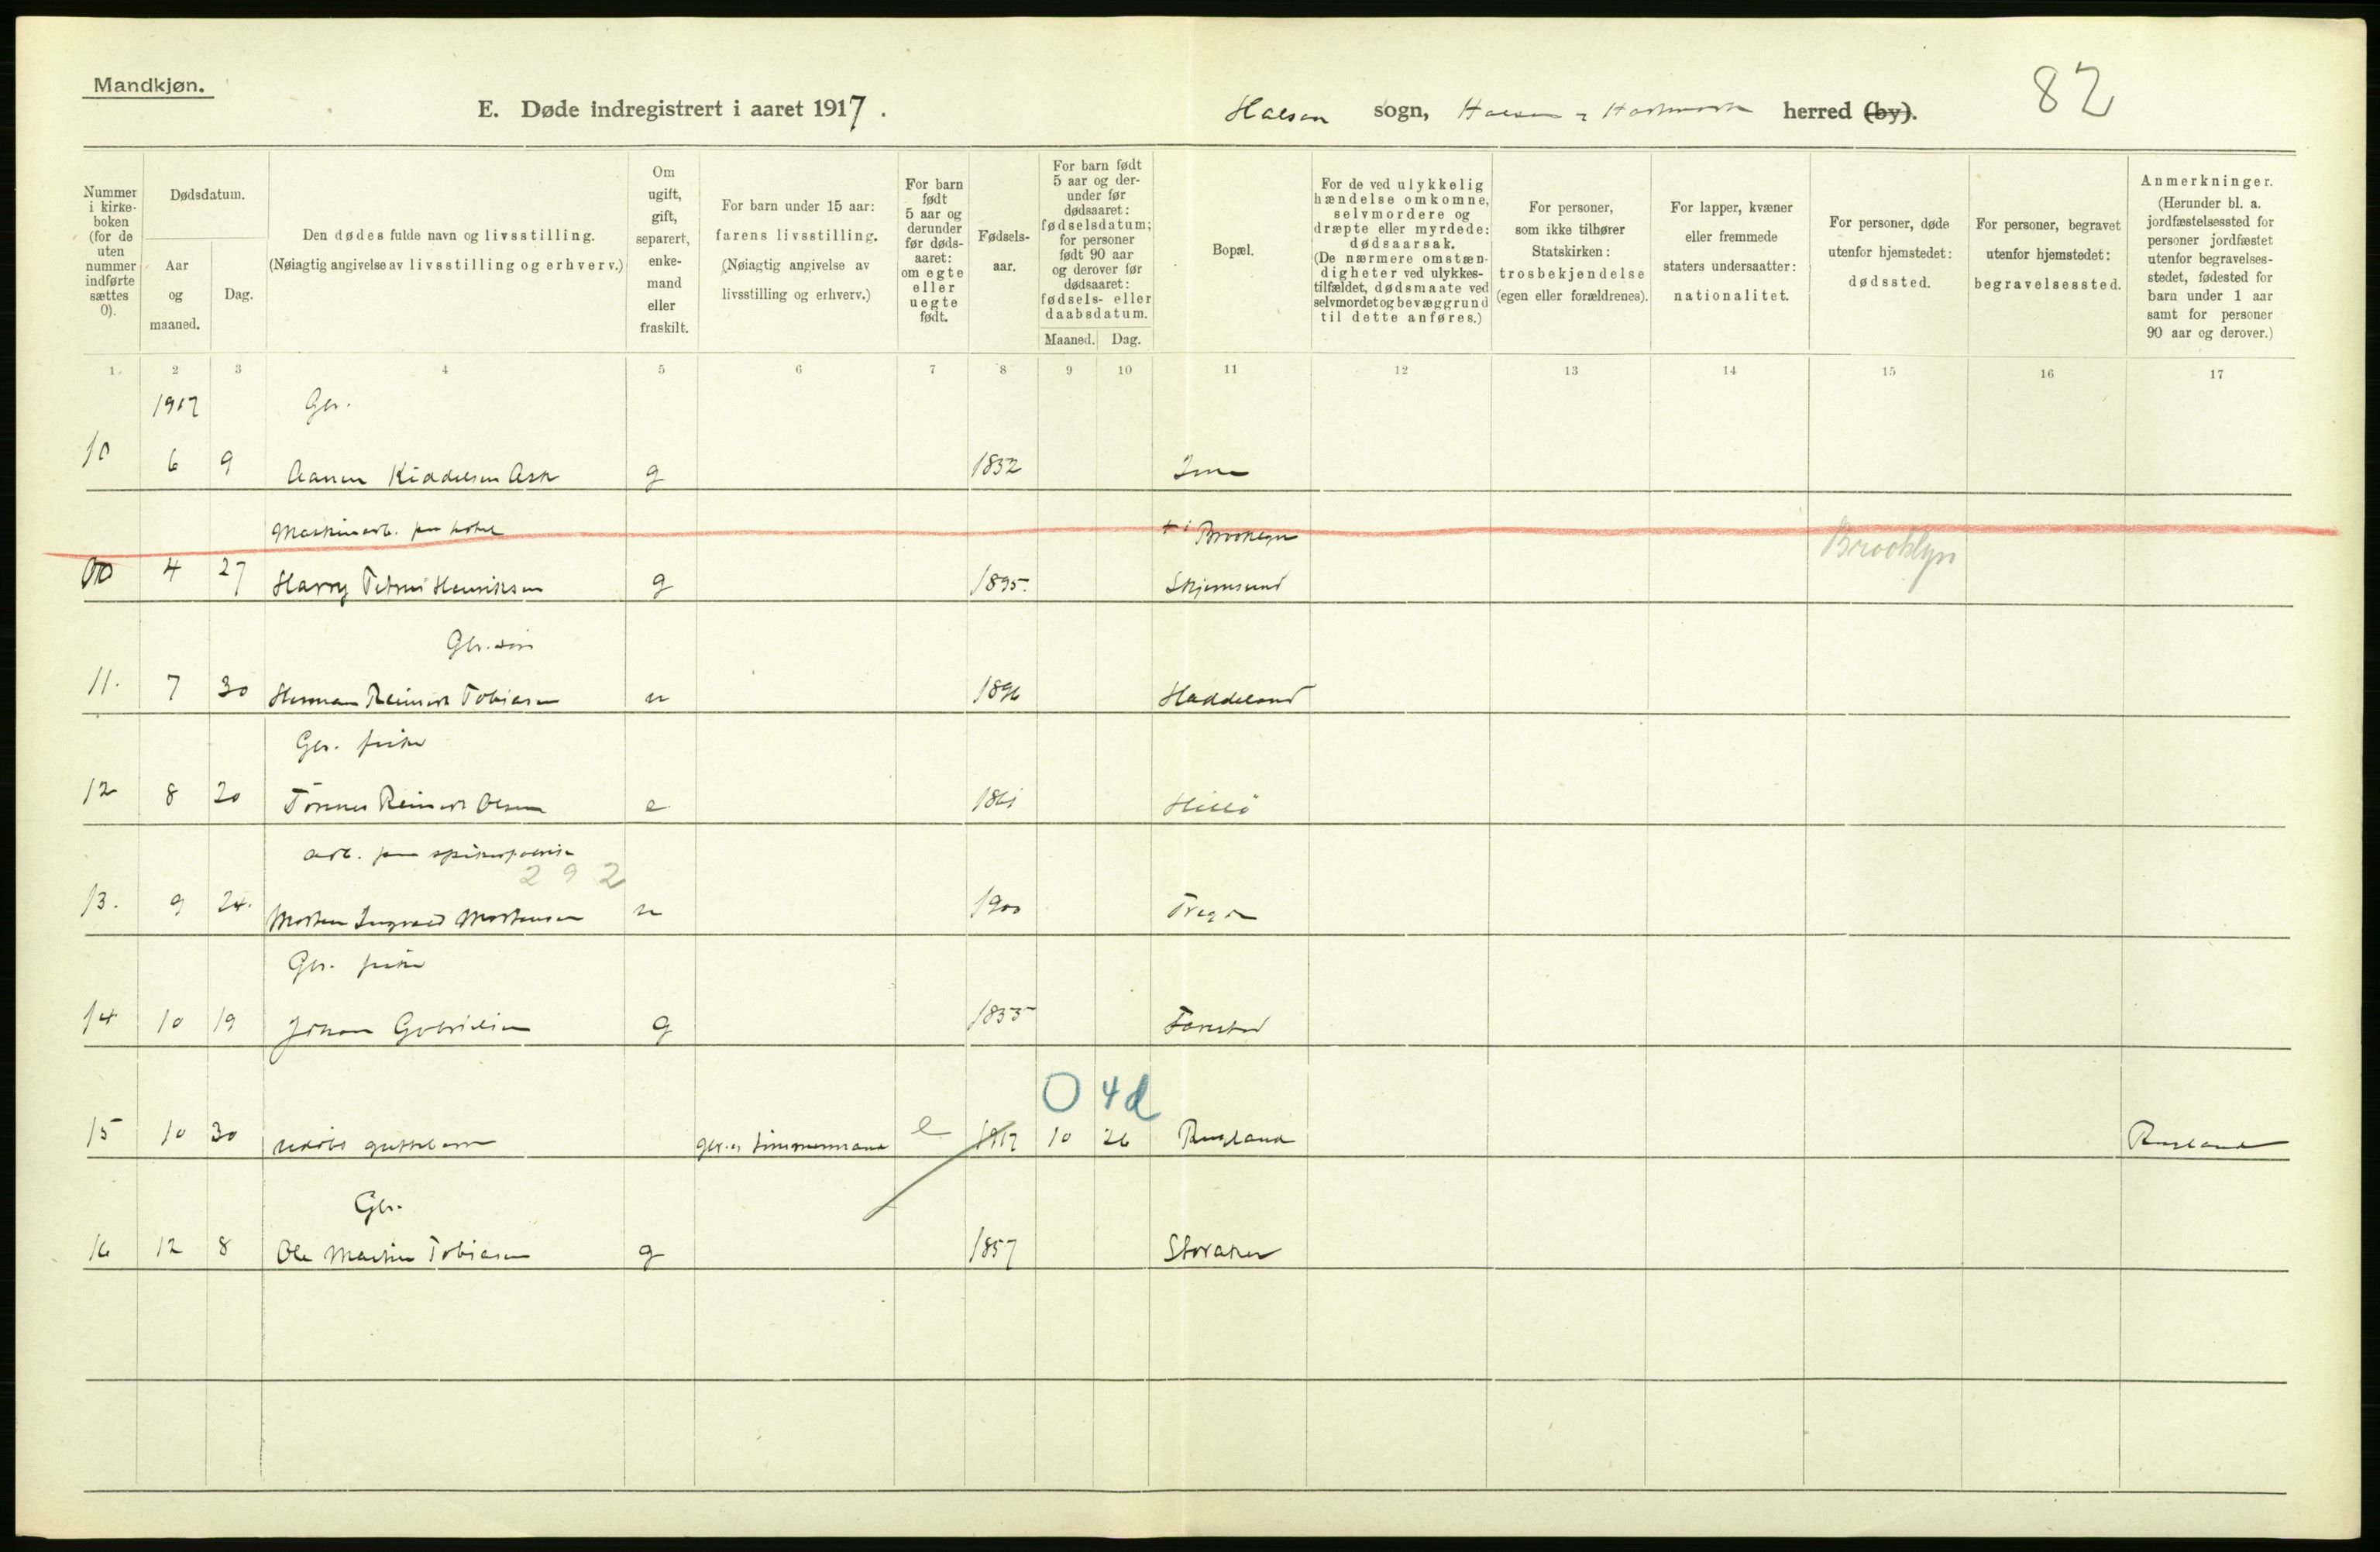 Mandkjøn.
E. Døde indregistrert i aaret 1917.
Halsaa sogn, Halsaa & Hartmark herred (by).
82
Nummer i kirkeboken (for de uten nummer indførte sættes 0).
Dødsdatum.
Aar og maaned.
Dag.
Den dødes fulde navn og livsstilling.
(Nøiagtig angivelse av livsstilling og erhverv.)
Om ugift, gift, separert, enkemand eller fraskilt.
For barn under 15 aar: farens livsstilling.
(Nøiagtig angivelse av livsstilling og erhverv.)
For barn født 5 aar og derunder før dødsaaret: om egte eller uegte født.
Fødselsaar.
For barn født 5 aar og derunder før dødsaaret: fødselsdatum; for personer født 90 aar og derover før dødsaaret: fødsels- eller daabsdatum.
Maaned. Dag.
Bopæl.
For de ved ulykkelig hændelse omkomne, selvmordere og dræpte eller myrdede: dødsaarsak.
(De nærmere omstændigheter ved ulykkestilfældet, dødsmaate ved selvmordet og bevæggrund til dette anføres.)
For personer, som ikke tilhører Statskirken: trosbekjendelse (egen eller forældrenes).
For lapper, kvæner eller fremmede staters undersaatter: nationalitet.
For personer, døde utenfor hjemstedet: dødssted.
For personer, begravet utenfor hjemstedet: begravelsessted.
Anmerkninger.
(Herunder bl. a. jordfæstelsessted for personer jordfæstet utenfor begravelsesstedet, fødested for barn under 1 aar samt for personer 90 aar og derover.)
1. 2 3 4 5 6 7 8 9 10 11 12 13 14 15 16 17
1917 Gbr.
10 6 9 Aanen Kiddelsen Ask g 1832 Ime
Maskinarb. paa hotel + i Brooklyn Brooklyn
0 4 27 Harry Petrus Henriksen g 1895. Skjernsund
Gbr. søn
11. 7 30 Herman Reinert Tobiasen u 1896 Haddeland
Gbr. fisker
12 8 20 Tønnes Reinert Olsen e 1861 Hillö
arb. paa spikerfabrik
292
13. 9 24. Morten Ingvald Mortensen u 1900 Tregde
Gbr. fisker
14 10 19 Johan Gabrielsen g 1835 Farestad
0 4d
15 10 30 udøbt guttebarn gbr. og tømmermand e 1917 10 26 Rusland Rusland
Gbr.
16 12 8 Ole Martin Tobiasen g 1857 Storaker